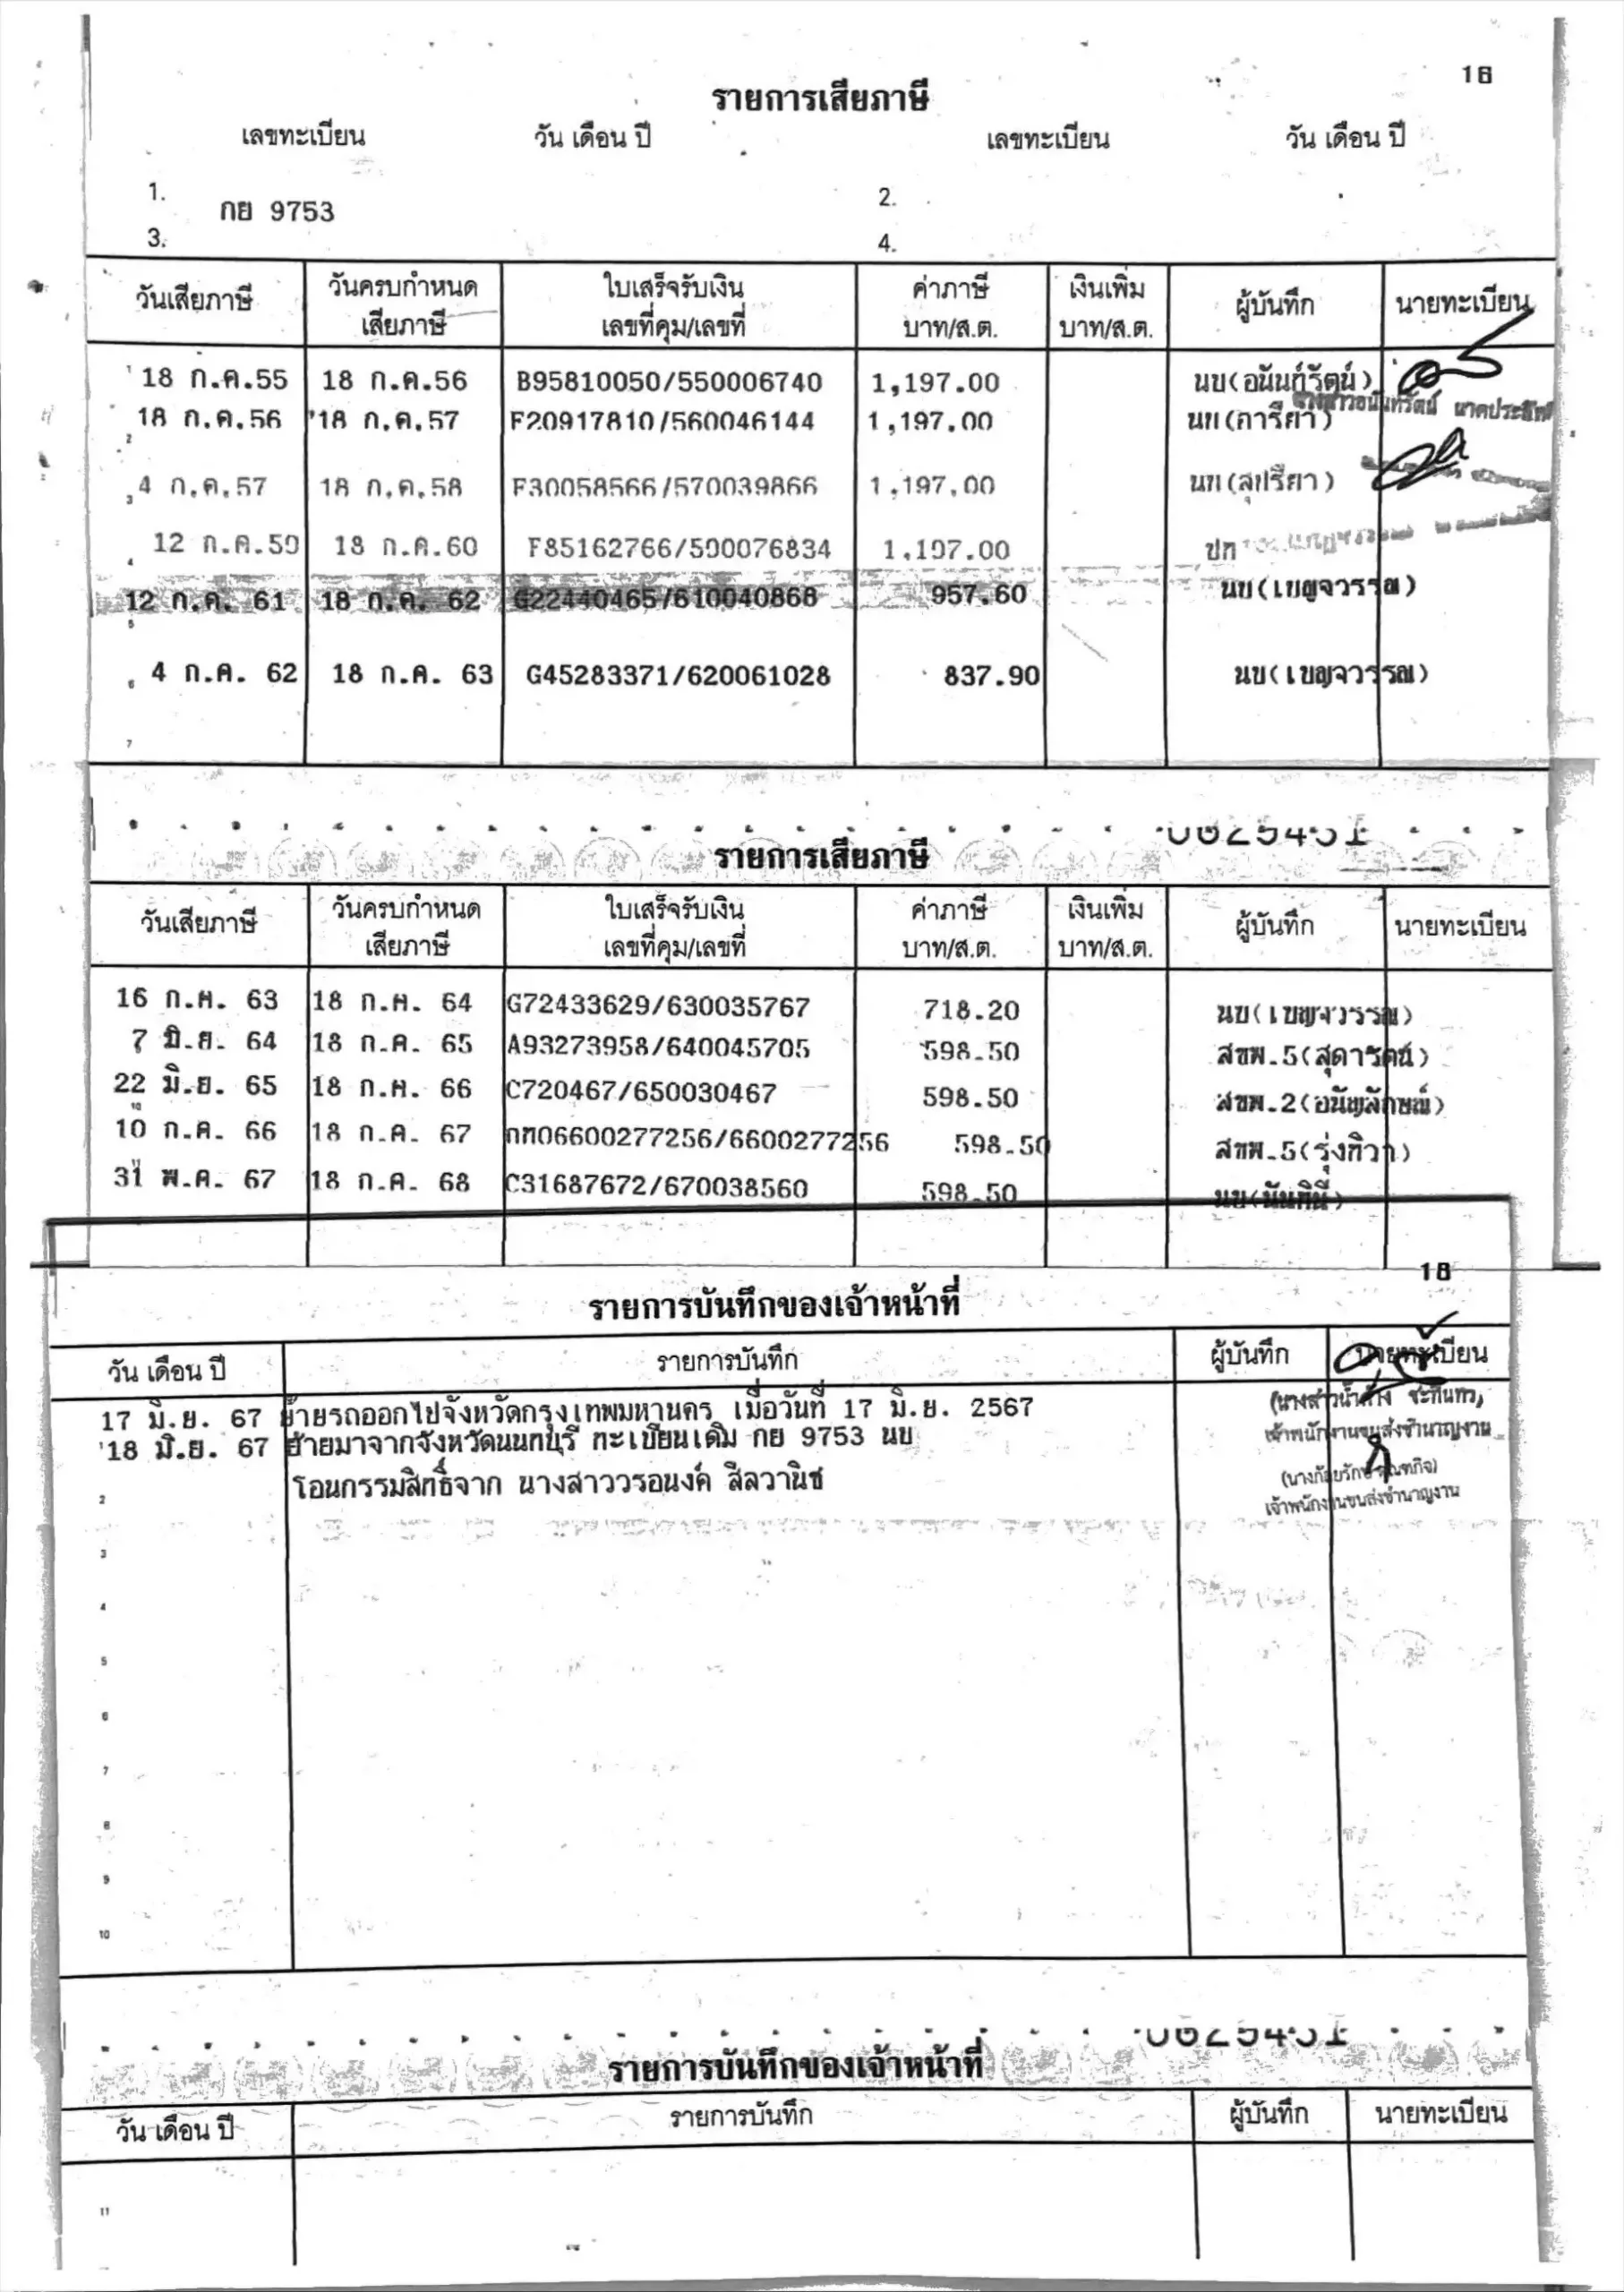 16
รายการเสียภาษี
เลขทะเบียน วัน เดือน ปี เลขทะเบียน วัน เดือน ปี
1. กย 9753 2.
3. 4.
วันเสียภาษี วันครบกำหนดเสียภาษี ใบเสร็จรับเงิน เลขที่คุม/เลขที่ ค่าภาษี บาท/ส.ต. เงินเพิ่ม บาท/ส.ต. ผู้บันทึก นายทะเบียน
1 18 ก.ค.55 18 ก.ค.56 B95810050/550006740 1,197.00 นบ(อนันท์รัตน์)
2 18 ก.ค.56 18 ก.ค.57 F20917810/560046144 1,197.00 นบ(การียา)
3 4 ก.ค.57 18 ก.ค.58 F30058566/570039866 1,197.00 นบ(สุปรียา)
4 12 ก.ค.59 18 ก.ค.60 F85162766/590076834 1,197.00 ปท
5 12 ก.ค. 61 18 ก.ค. 62 G22440465/610040868 957.60 นบ(เบญจวรรณ)
6 4 ก.ค. 62 18 ก.ค. 63 G45283371/620061028 837.90 นบ(เบญจวรรณ)
7
0625451
รายการเสียภาษี
วันเสียภาษี วันครบกำหนดเสียภาษี ใบเสร็จรับเงิน เลขที่คุม/เลขที่ ค่าภาษี บาท/ส.ต. เงินเพิ่ม บาท/ส.ต. ผู้บันทึก นายทะเบียน
16 ก.ค. 63 18 ก.ค. 64 G72433629/630035767 718.20 นบ(เบญจวรรณ)
7 มิ.ย. 64 18 ก.ค. 65 A93273958/640045705 598.50 สขพ.5(สุดารัตน์)
22 มิ.ย. 65 18 ก.ค. 66 C720467/650030467 598.50 สขพ.2(อนัญลักษณ์)
10 ก.ค. 66 18 ก.ค. 67 กท06600277256/6600277256 598.50 สขพ.5(รุ่งทิวา)
31 พ.ค. 67 18 ก.ค. 68 C31687672/670038560 598.50 นบ(นันทินี)
18
รายการบันทึกของเจ้าหน้าที่
วัน เดือน ปี รายการบันทึก ผู้บันทึก นายทะเบียน
17 มิ.ย. 67 ย้ายรถออกไปจังหวัดกรุงเทพมหานคร เมื่อวันที่ 17 มิ.ย. 2567
เจ้าพนักงานขนส่งชำนาญงาน
18 มิ.ย. 67 ย้ายมาจากจังหวัดนนทบุรี ทะเบียนเดิม กย 9753 นบ
2 โอนกรรมสิทธิ์จาก นางสาววรอนงค์ สีลวานิช
เจ้าพนักงานขนส่งชำนาญงาน
3
4
5
6
7
8
9
10
0625451
รายการบันทึกของเจ้าหน้าที่
วัน เดือน ปี รายการบันทึก ผู้บันทึก นายทะเบียน
11